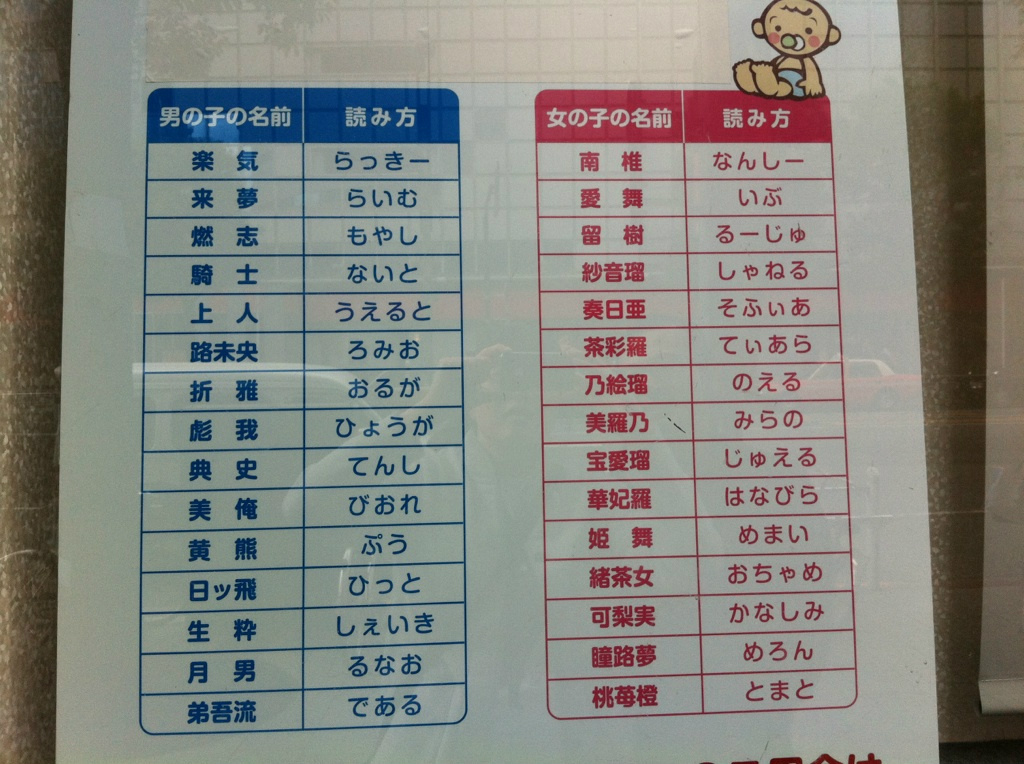 男の子の名前 読み方
楽 気 らっきー
来 夢 らいむ
燃 志 もやし
騎 士 ないと
上 人 うえると
路未央 ろみお
折 雅 おるが
彪 我 ひょうが
典 史 てんし
美 俺 びおれ
黄 熊 ぷう
日ッ飛 ひっと
生 粋 しぇいき
月 男 るなお
弟吾流 である
女の子の名前 読み方
南 椎 なんしー
愛 舞 いぶ
留 樹 るーじゅ
紗音瑠 しゃねる
奏日亜 そふぃあ
茶彩羅 てぃあら
乃絵瑠 のえる
美羅乃 みらの
宝愛瑠 じゅえる
華妃羅 はなびら
姫 舞 めまい
緒茶女 おちゃめ
可梨実 かなしみ
瞳路夢 めろん
桃苺橙 とまと